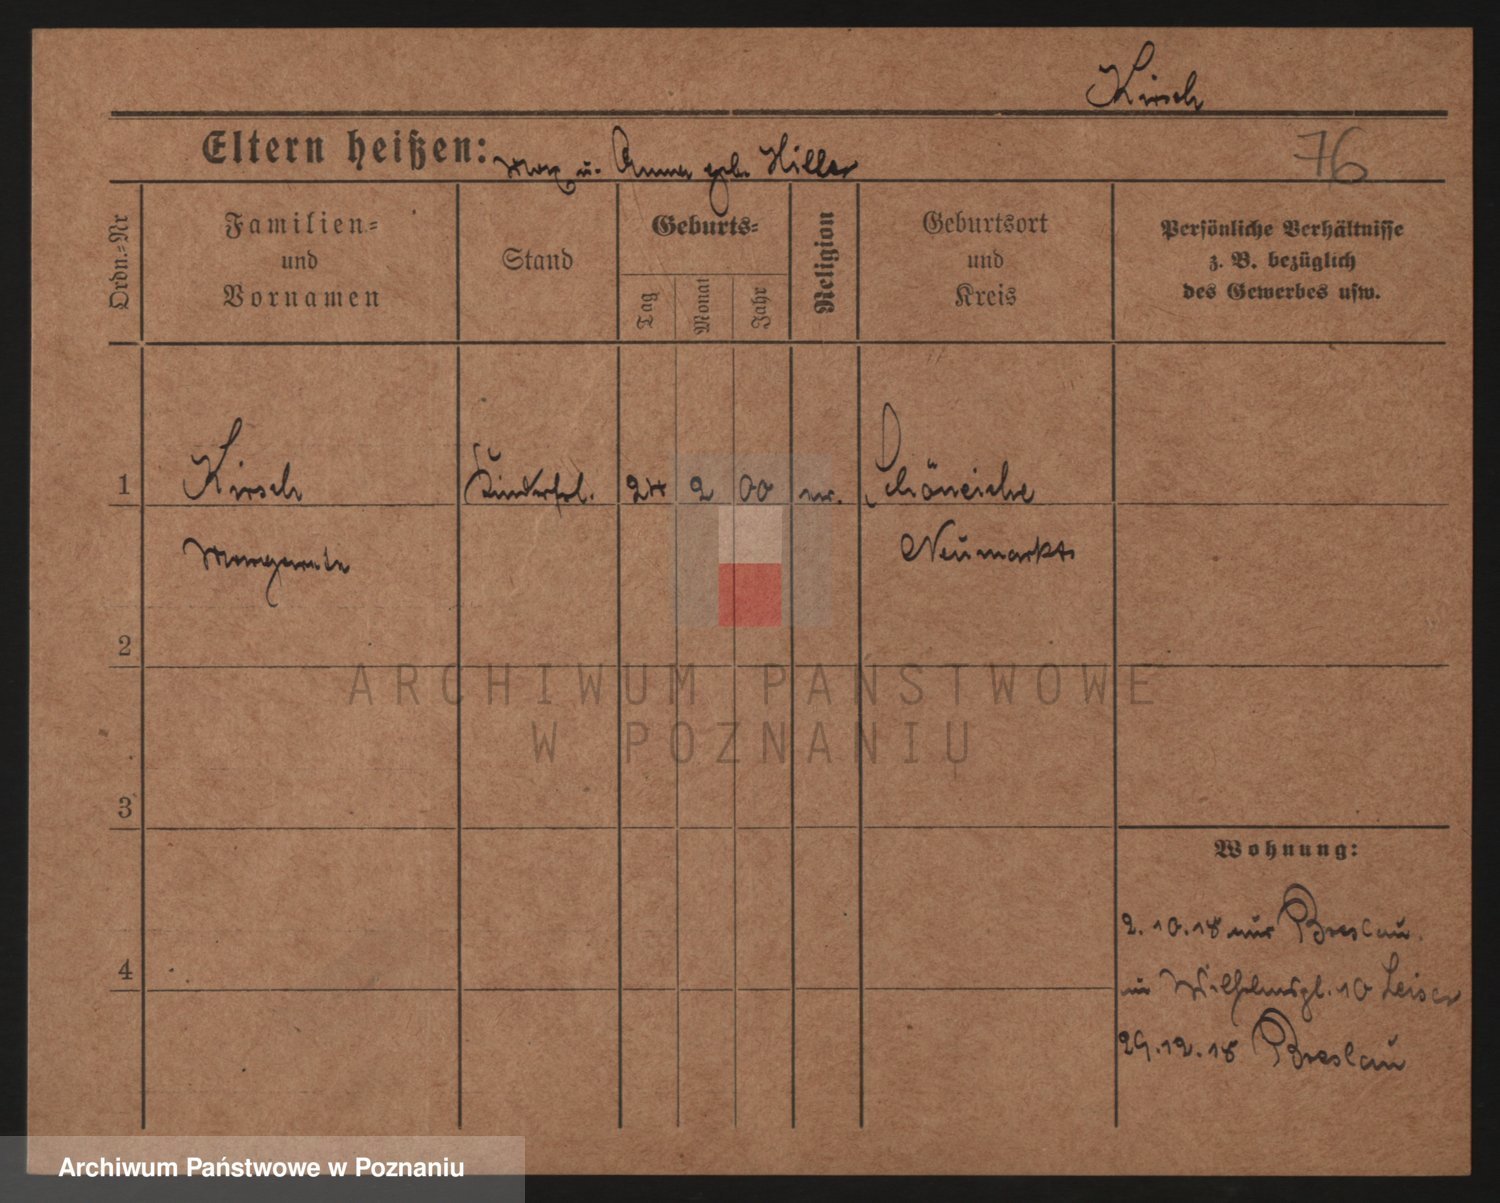 Kirsch
Eltern heißen: Max u. Anna geb. Hiller
76
Ordn.=Nr
Familien=
und
Vornamen
Stand
Geburts=
Tag
Monat
Jahr
Religion
Geburtsort
und
Kreis
Persönliche Verhältnisse
z. B. bezüglich
des Gewerbes usw.
1
Kirsch
Kinderfrl.
24
2
00
ev.
Schöneiche
Margarete
Neumarkt
2
ARCHIWUM PAŃSTWOWE
W POZNANIU
3
Wohnung:
2.10.18 aus Breslau.
in Wilhelmspl. 10 Leiser
4
29.12.18 Breslau
Archiwum Państwowe w Poznaniu